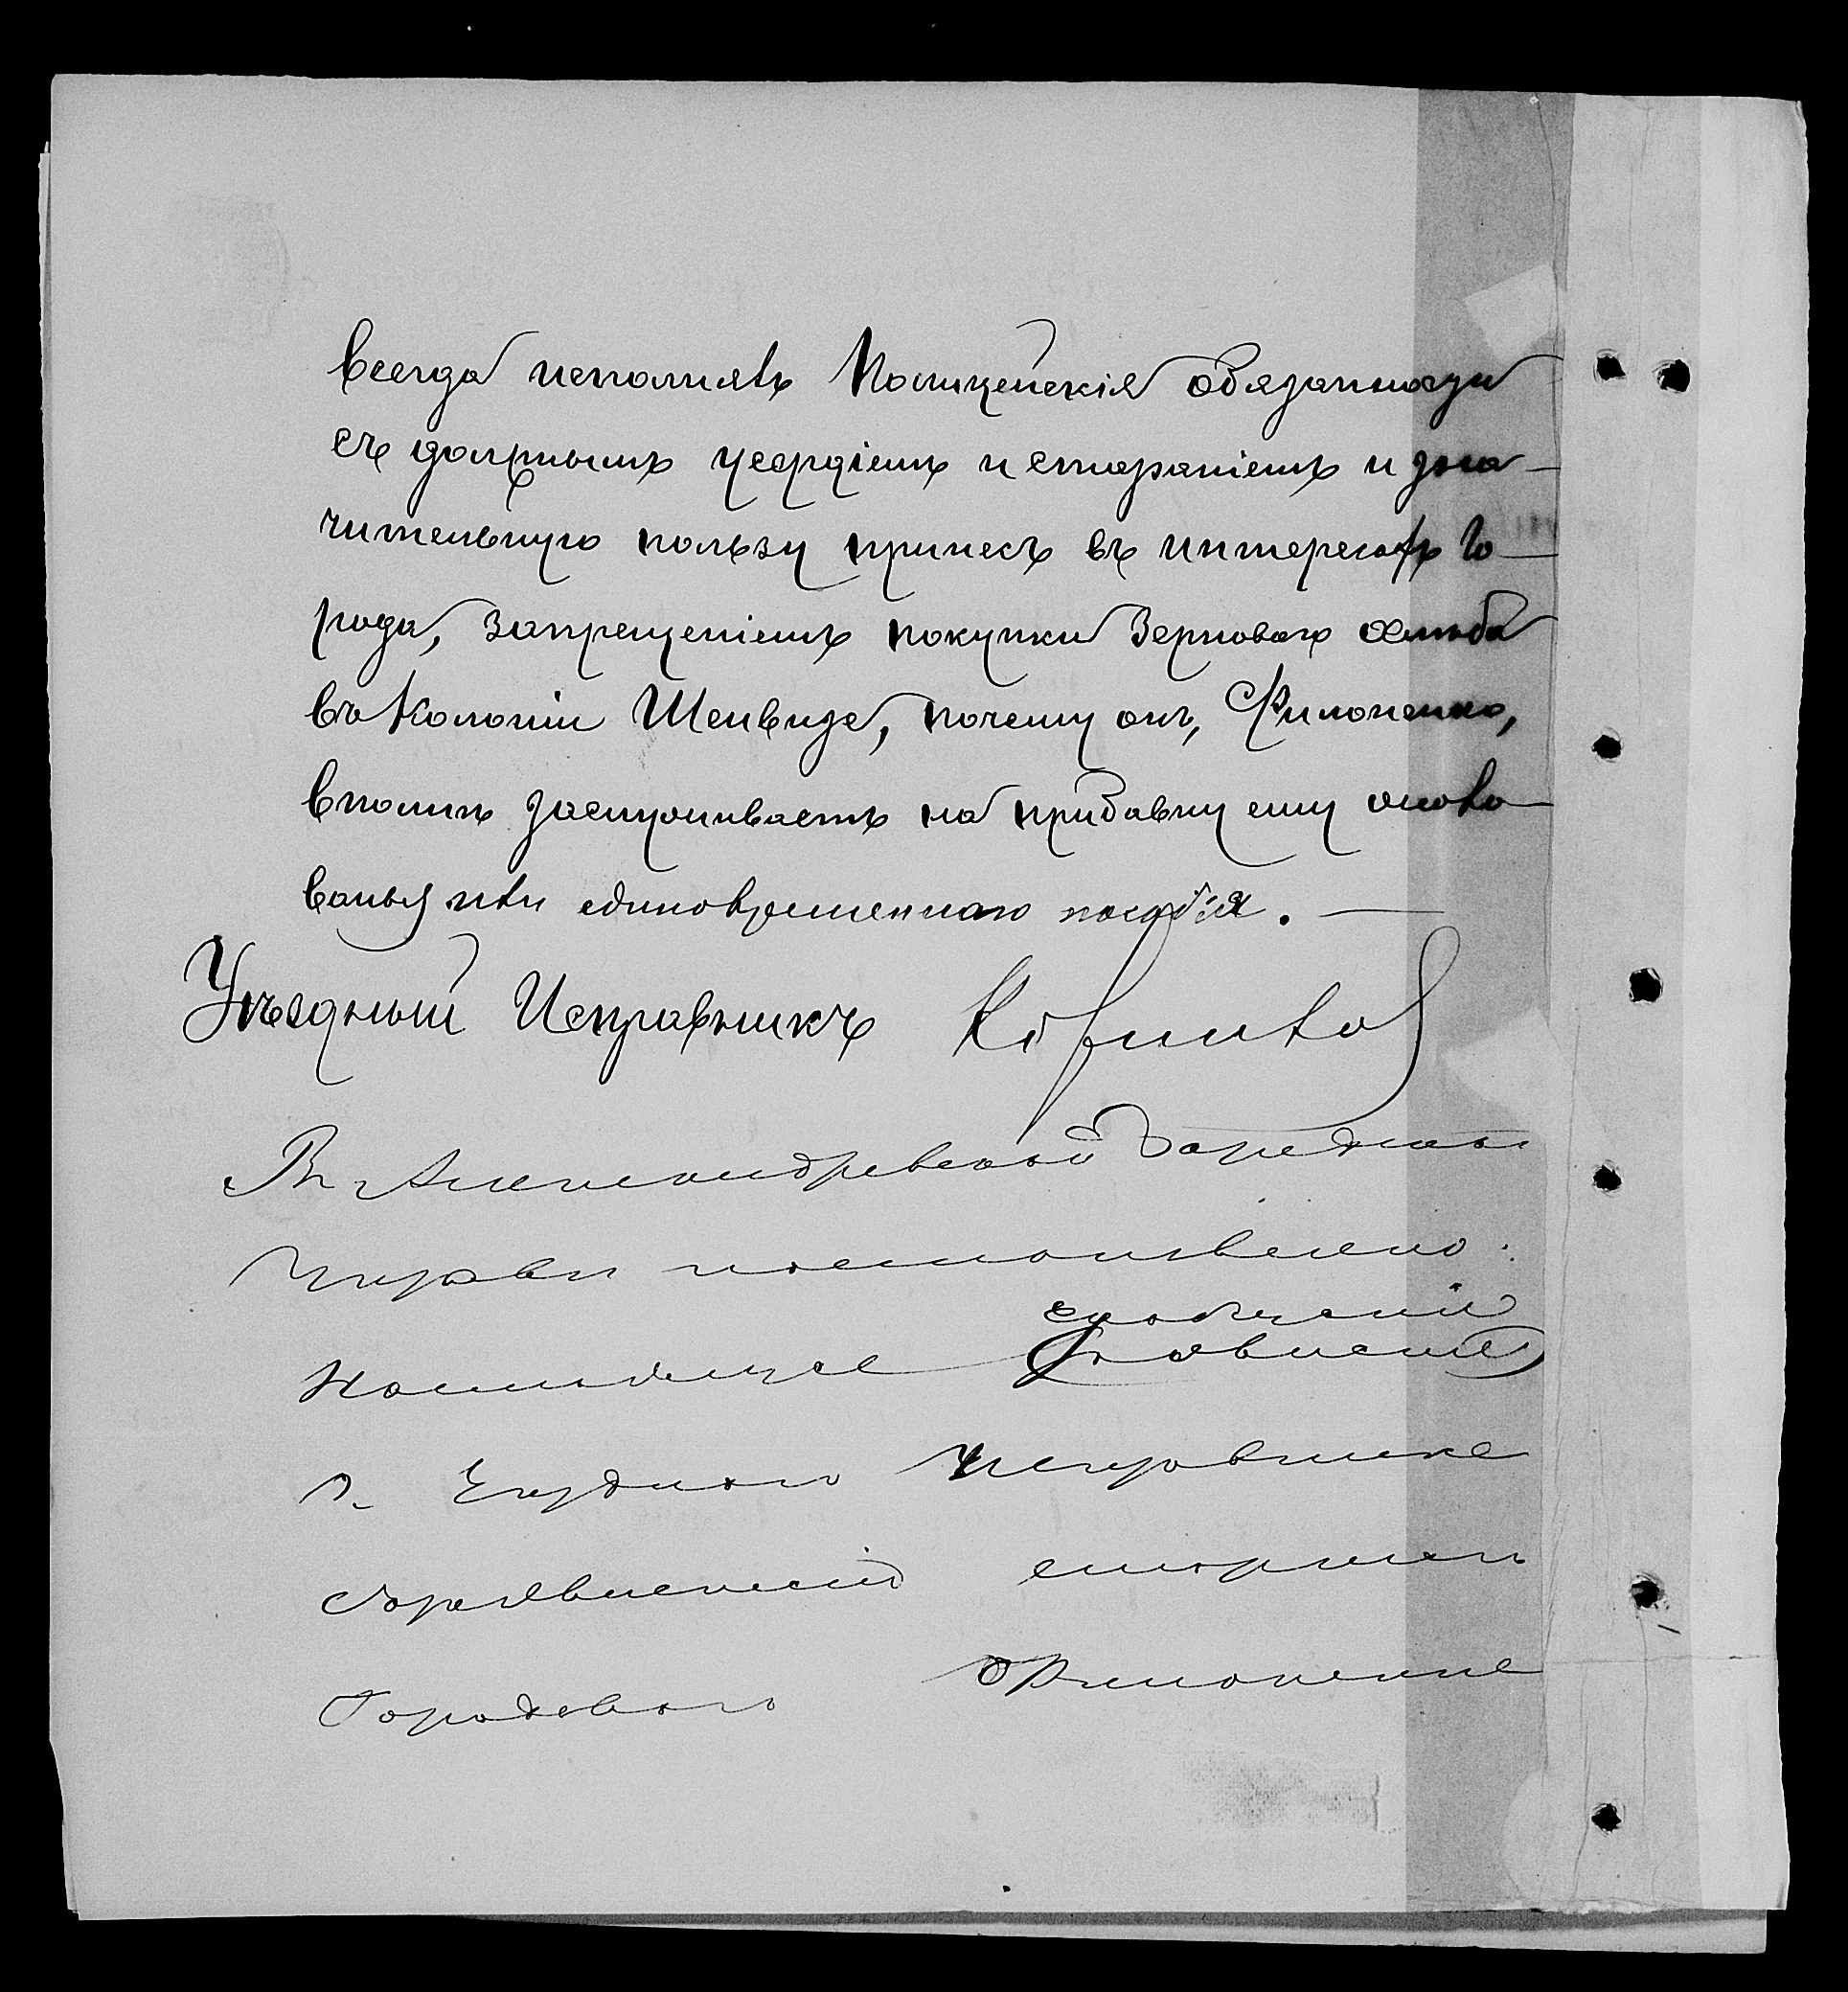 всегда исполняетъ Полицейскія обязанности
съ должнымъ усердіемъ и стараніемъ и зна-
чительную пользу принесъ въ интересахъ Го-
рода, запрещеніемъ покупки Зернового хлѣба
въ Колоніи Шенвизе, почему онъ, Филоненко,
вполнѣ заслуживаетъ на прибавку ему жало-
ванья или единовременного пособія. —
Уѣздный Исправникъ
Въ Александровской Городской
Управѣ постановлено:
г. Уѣзднаго Исправника
старшему
Городового Филоненко